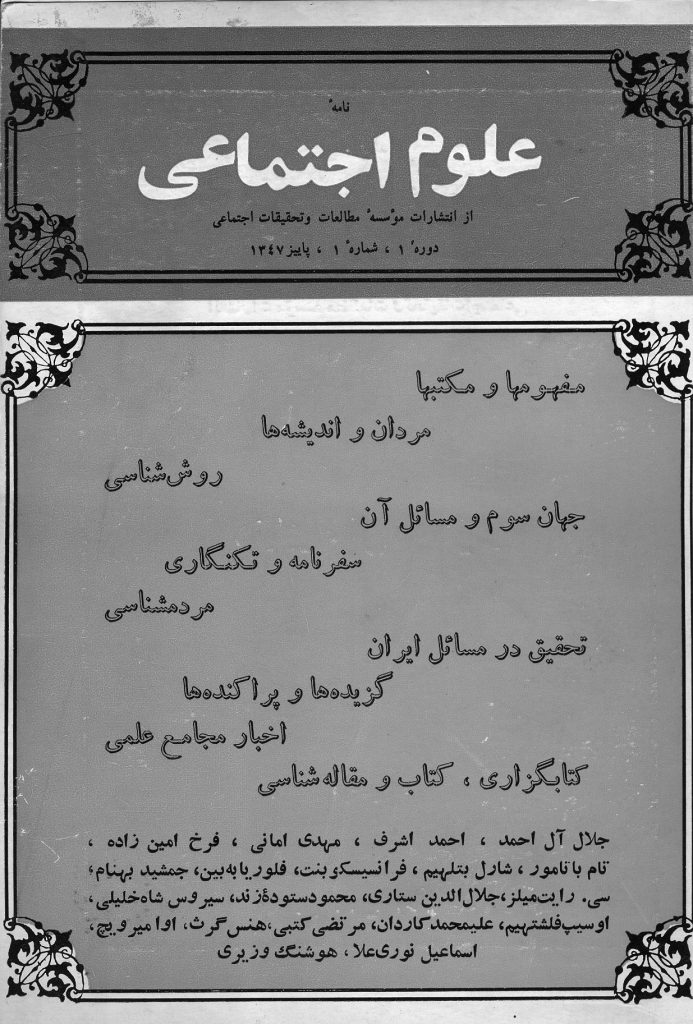 نامهٔ
علوم اجتماعی
از انتشارات مؤسسهٔ مطالعات و تحقیقات اجتماعی
دورهٔ ۱ ، شمارهٔ ۱ ، پاییز ۱۳٤۷
مفهومها و مکتبها
مردان و اندیشه‌ها
روش‌شناسی
جهان سوم و مسائل آن
سفرنامه و تکنگاری
مردمشناسی
تحقیق در مسائل ایران
گزیده‌ها و پراکنده‌ها
اخبار مجامع علمی
کتابگزاری ، کتاب و مقاله‌شناسی
جلال آل احمد ، احمد اشرف ، مهدی امانی ، فرخ امین زاده ،
تام باتامور ، شارل بتلهیم ، فرانسیسکو بنت، فلوریا به‌بین، جمشید بهنام،
سی. رایت‌میلز، جلال‌الدین ستاری، محمود ستودهٔ زند، سیروس شاه‌خلیلی،
اوسیپ فلشتهیم، علیمحمد کاردان، مرتضی کتبی، هنس گرث، اوا میرویچ،
اسماعیل نوری‌علا، هوشنگ وزیری